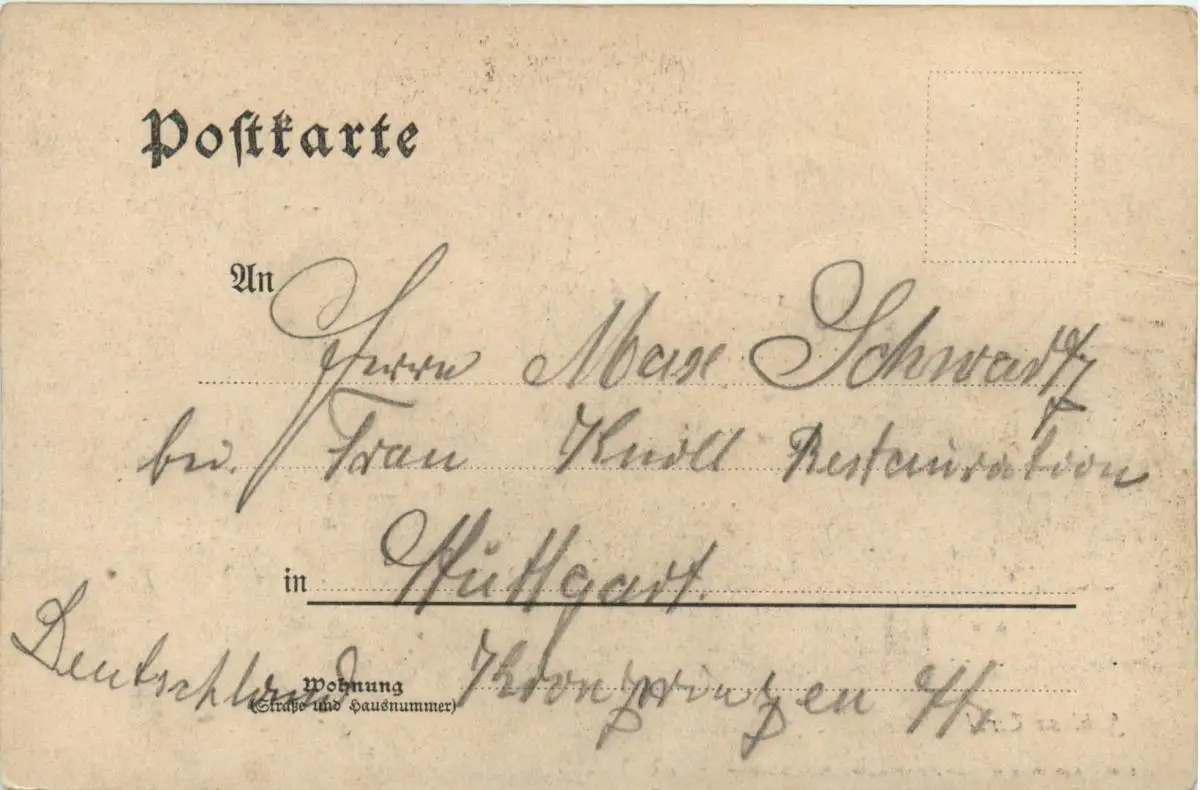 Postkarte
An Herrn Max Schwartz
bei Frau Knoll Restauration
in Stuttgart.
Deutschland Kronprinzen
Wohnung
(Straße und Hausnummer)